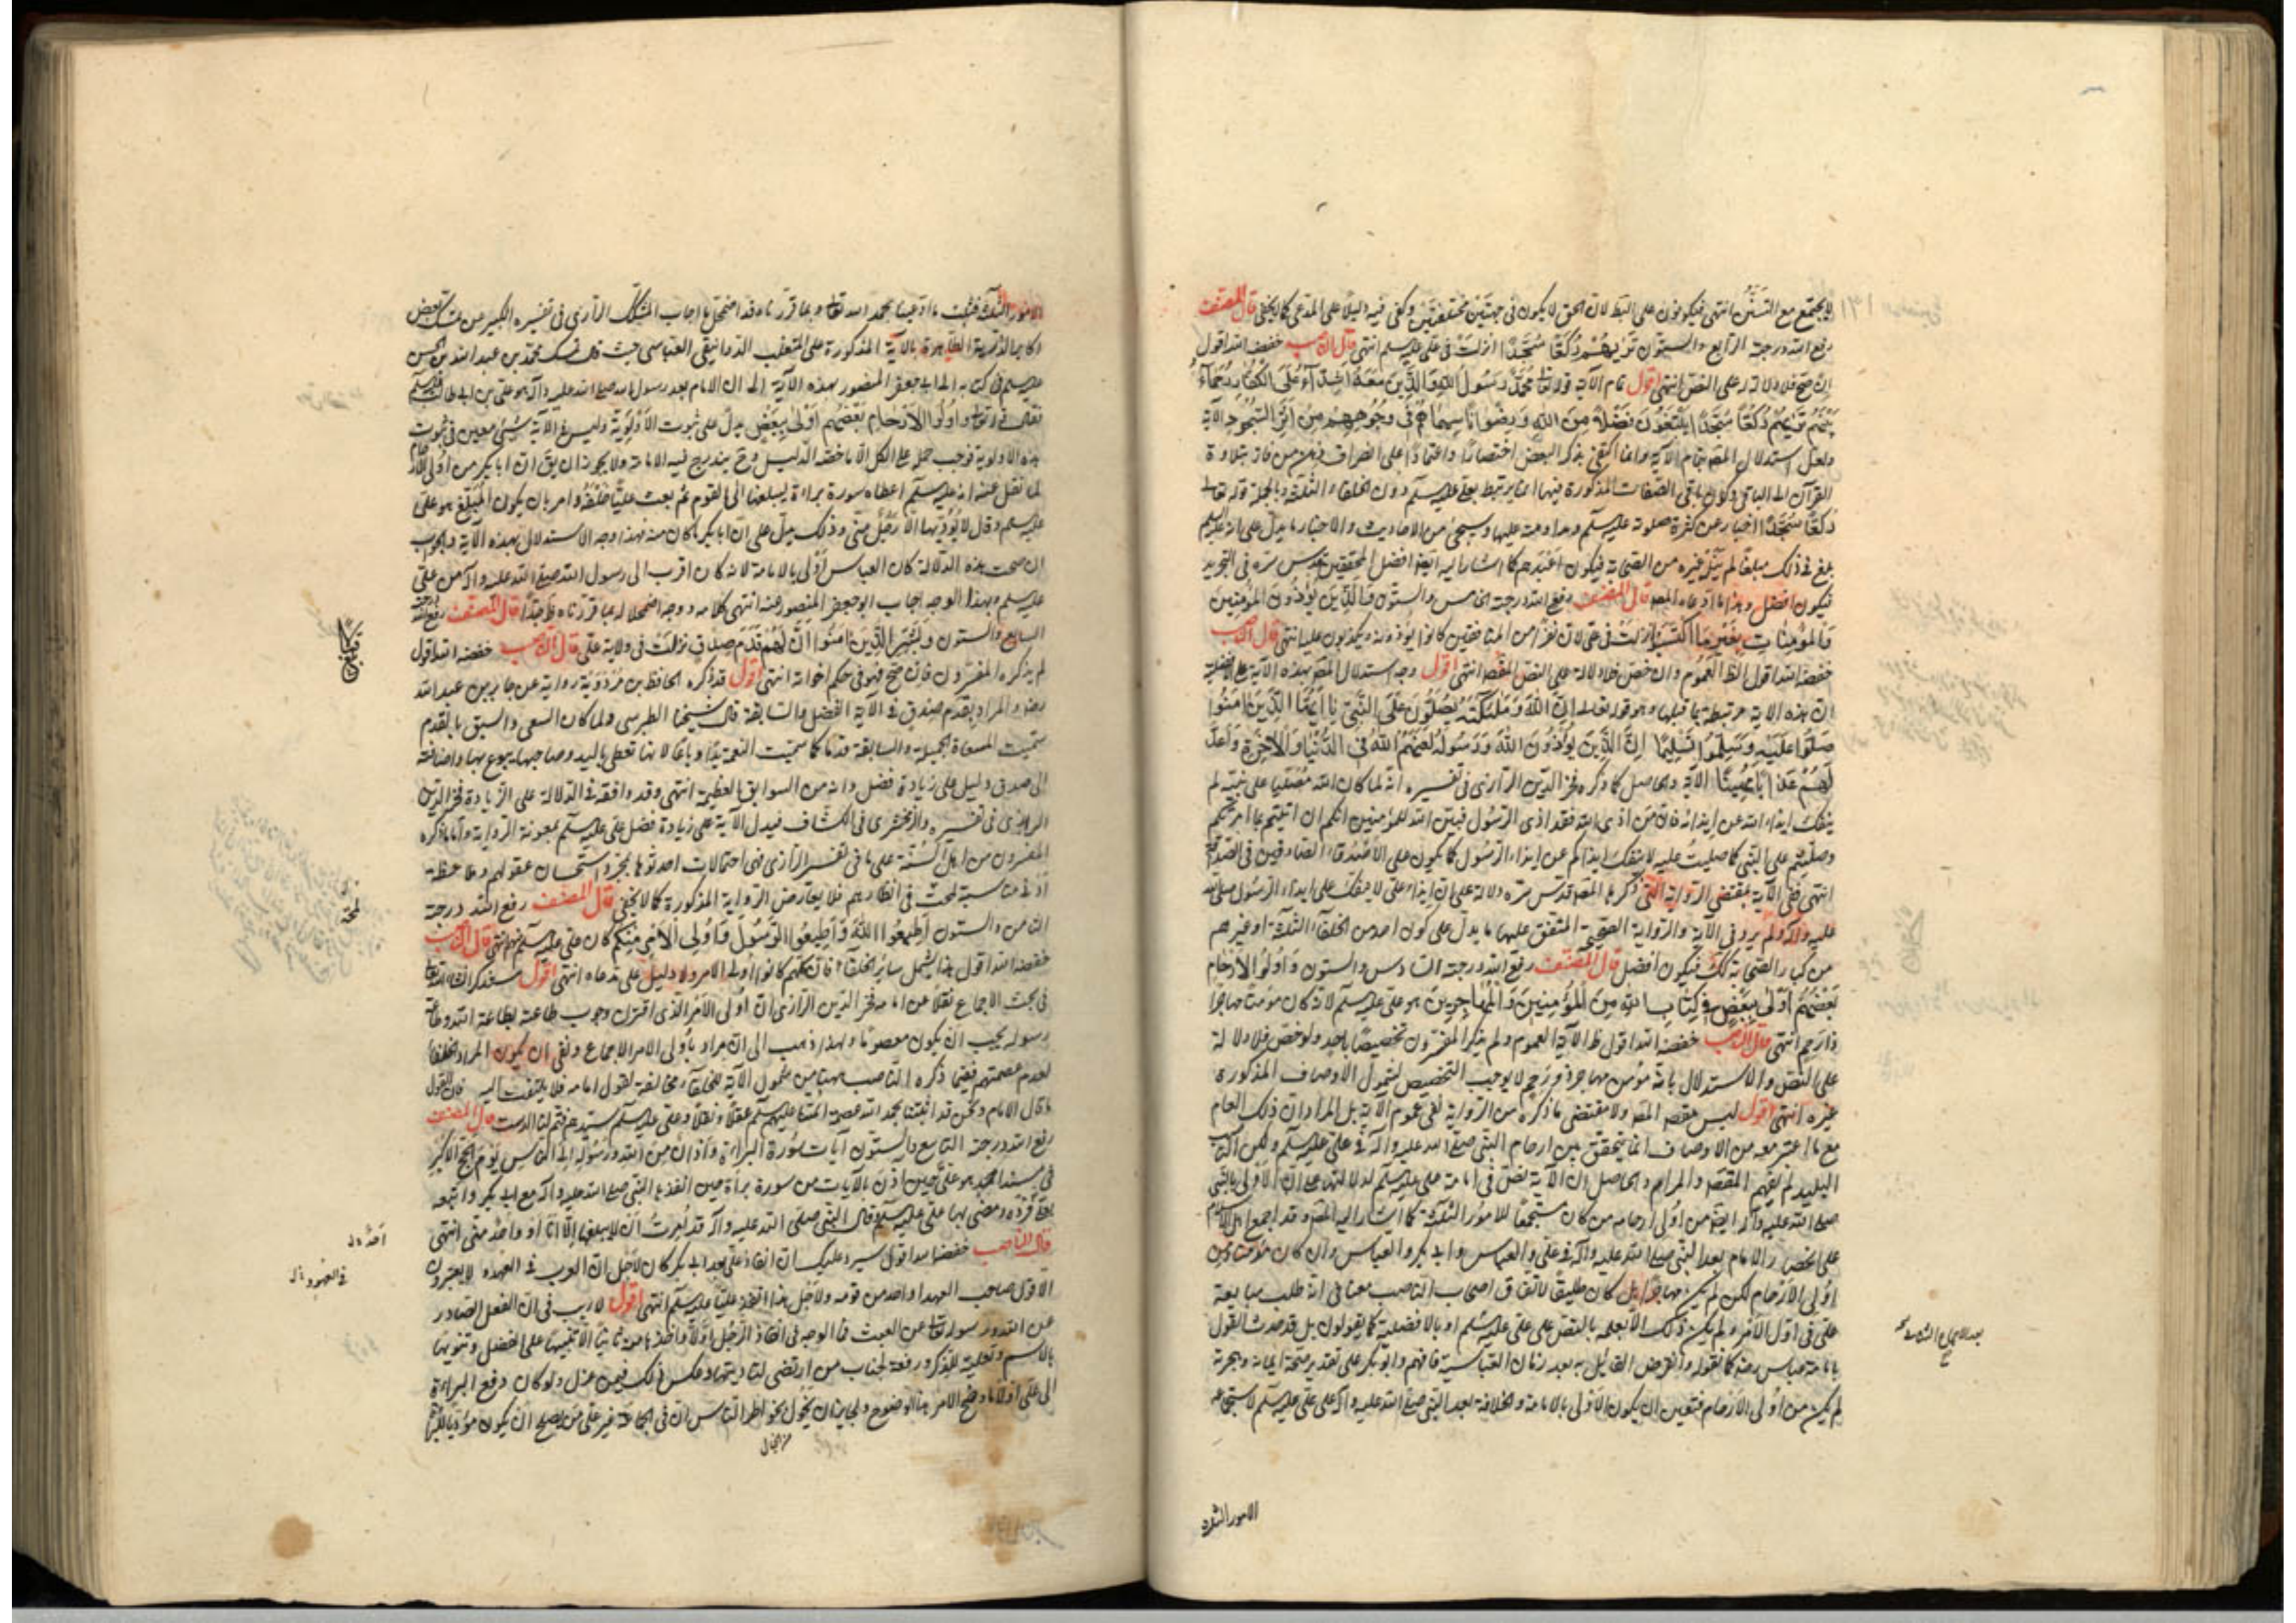 لا يجتمع مع التسنّن انتهى فيكونون على الباطل لان الحق لا يكون في جهتين مختلفتين وكفى فيه دليلا على المدعى كما لا يخفى قال المصنف
رفع الله درجته الرابع والستون تريهم ركعا سجدا انزلت في علي عليه سلم انتهى قال الناصب خفضه الله اقول
ان صح فلا دلالة له على النص انتهى اقول تمام الآية قوله تعالى محمد رسول الله والذين معه اشداء على الكفار رحماء
بينهم تريهم ركعا سجدا يبتغون فضلا من الله ورضوانا سيماهم في وجوههم من اثر السجود الآية
ولعل استدلال المصـ بتمام الآية وانما اكتفى بذكر البعض اختصارا واعتمادا على انصراف ذهن من فاز بتلاوة
القرآن الى الباقي وكون باقي الصفات المذكورة فيها انما يرتبط بعلي عليه سلم دون الخلفاء الثلثة وبالجملة قوله تعالى
ركعا سجدا اخبار عن كثرة صلوته عليه سلم ومداومته عليها وسيجئ من الاحاديث والاخبار ما يدل على انه عليه سلم
بلغ في ذلك مبلغا لم ينله غيره من الصحابة فيكون اعبدهم كما اشار اليه ايضا افضل المحققين قدس سره في التجريد
فيكون افضل وهذا ما ادعاه المصـ قال المصنف رفع الله درجته الخامس والستون والذين يؤذون المؤمنين
والمؤمنات بغير ما اكتسبوا نزلت في علي لان نفرا من المنافقين كانوا يؤذونه ويكذبون عليه انتهى قال الناصب
خفضه الله اقول الظـ العموم وان خص فلا دلالة على النص المقصـ انتهى اقول وجه استدلال المصـ بهذه الآية على افضلية
ان هذه الآية مرتبطة بما قبلها وهو قوله تعالى ان الله وملئكته يصلون على النبي يا ايها الذين امنوا
صلوا عليه وسلموا تسليما ان الذين يؤذون الله ورسوله لعنهم الله في الدنيا والاخرة واعد
لهم عذابا مهينا الآية والحاصل كما ذكره فخر الدين الرازي في تفسيره انه لما كان الله مصليا على نبيه لم
ينفك ايذاء الله عن ايذائه فان من اذى الله فقد اذى الرسول فبين الله للمؤمنين انكم ان اتيتم بما امرتكم
وصليتم على النبي كما صليت عليه لا ينفك ايذاكم عن ايذاء الرسول كما يكون على الاصدقاء الصادقين في الصداقة
انتهى ففي الآية بمقتضى الرواية التي ذكرها المصـ قدس سره دلالة على ان ايذاء علي لا ينفك على ايذاء الرسول صلى الله
عليه وآله ولم يرد في الآية والرواية الصحيحة المتفق عليها ما يدل على كون احد من الخلفاء الثلثة او غيرهم
من كبار الصحابة كذلك فيكون افضل قال المصنف رفع الله درجته السادس والستون واولوا الارحام
بعضهم اولى ببعض في كتاب الله من المؤمنين والمهاجرين هو علي عليه سلم لانه كان مؤمنا مهاجرا
ذا رحم انتهى قال الناصب خفضه الله اقول ظـ الآية العموم ولم يذكر المفسرون تخصيصا باحد ولو خص فلا دلالة
على النص والاستدلال بانه مؤمن مهاجر ذو رحم لا يوجب التخصيص لشمول الاوصاف المذكورى
غيره انتهى اقول ليس مقصـ المصـ ولا مقتضى ما ذكره من الرواية نفي عموم الآية بل المراد ان ذلك العام
مع ما اعتبر معه من الاوصاف انما يتحقق من ارحام النبي صلى الله عليه وآله في علي عليه سلم ولكن الناصب
البليد لم يفهم المقصـ والمرام والحاصل ان الآية نص في امامة علي عليه سلم لدلالتها على ان الاولى بالنبي
صلى الله عليه وآله ايضا من اولى ارحامه من كان مستجمعا للامور الثلثة كما اشار اليه المصـ وقد اجمع اهل الاسلام
على انحصار الامام بعد النبي صلى الله عليه وآله في علي والعباس وابي بكر والعباس وان كان مؤمنا ومن
اولي الارحام لكن لم يكن مهاجرا بل كان طليقا لاتفاق اصحاب الناصب معنا في انه طلب مبايعة
علي في اول الامر ولم يكن ذلك الا لعلمه بالنص على علي عليه سلم او بالافضلية كما يقولون بل قد حدث القول
بامامة عباس رضـ كما نقوله وانقرض القائل به بعد زمان العباسية فافهم وابو بكر على تقدير صحة ايمانه وهجرته
لم يكن من اولى الارحام فتعين ان يكون الاولى بالامامة والخلافة بعد النبي صلى الله عليه وآله علي عليه سلم لاستجماعه
الامور الثلثة
الامور الثلثة فثبت ما ادعينا بحمد الله تعالى وبما قررناه قد اضمحل ما اجاب المشكك الرازي في تفسيره الكبير عن تمسك بعض
اكابر الذرية الطاهرة بالآية المذكورة على المتغلب الدوانيقي العباسي حيث قال تمسك محمد بن عبد الله بن الحسن
عليه سلم في كتابه الى ابي جعفر المنصور بهذه الآية الى ان الامام بعد رسول الله صلى الله عليه وآله هو علي بن ابي طالب
فقال قوله تعالى واولوا الارحام بعضهم اولى ببعض يدل على ثبوت الاولوية وليس في الآية شيء معين في ثبوت
هذه الاولوية فوجب حمله على الكل الا ما خصه الدليل وح يندرج فيه الامامة ولا يجوز ان يق ان ابا بكر من اولى الارحام
لما نقل عنه انه عليه سلم اعطاه سورة براءة ليبلغها الى القوم ثم بعث عليا خلفه وامر بان يكون المبلغ هو علي
عليه سلم وقال لا يؤديها الا رجل مني وذلك يدل على ان ابا بكر ما كان منه فهذا وجه الاستدلال بهذه الآية والجواب
ان صحت هذه الدلالة كان العباس اولى بالامامة لانه كان اقرب الى رسول الله صلى الله عليه وآله من علي
عليه سلم وبهذا الوجه اجاب ابو جعفر المنصور عنه انتهى كلامه ووجه اضمحلاله بما قررناه ظـ جدا قال المصنف رفع الله درجته
السابع والستون وبشر الذين امنوا ان لهم قدم صدق نزلت في ولاية علي قال الناصب خفضه الله اقول
لم يذكره المفسرون فان صح فهو في حكم اخواته انتهى اقول قد ذكره الحافظ بن مردويه رواية عن جابر بن عبد الله
رضـ والمراد بقدم صدق في الآية الفضل والسابقة قال شيخنا الطبرسي ولما كان السعي والسبق بالقدم
سميت المسعاة الجميلة والسابقة قدما كما سميت النعمة يدا وباعا لانها تعطى باليد وصاحبها يبوع بها واضافته
الى صدق دليل على زيادة فضل وانه من السوابق العظيمة انتهى وقد وافقه في الدلالة على الزيادة فخر الدين
الرازي في تفسيره والزمخشري في الكشاف فيدل الآية على زيادة فضل علي عليه سلم بمعونة الرواية واما ما ذكره
المفسرون من اهل السنة على ما في تفسير الرازي فهي احتمالات احدثوها بمجرد استحسان عقولهم وملاحظة
ادنى مناسبة لمحت في انظارهم فلا يعارض الرواية المذكورة كما لا يخفى قال المصنف رفع الله درجته
الثامن والستون اطيعوا الله واطيعوا الرسول واولى الامر منكم كان علي عليه سلم منهم انتهى قال الناصب
خفضه الله اقول هذا يشمل سائر الخلفاء فان كلهم كانوا اولي الامر ولا دليل على مدعاه انتهى اقول سنذكر انشاء الله تعالى
في بحث الاجماع نقلا عن امامه فخر الدين الرازي ان اولى الامر الذي اقترن وجوب طاعته بطاعة الله وطاعة
رسوله يجب ان يكون معصوما ولهذا ذهب الى ان مراد باولى الامر الاجماع ونفى ان يكون المراد الخلفاء
لعدم عصمتهم ففيما ذكره الناصب ههنا من شمول الآية للخلفاء مخالفة لقول امامه فلا يلتفت اليه فان القول
ما قال الامام ونحن قد اثبتنا بحمد الله عصمة ائمتنا عليهم سلم عقلا ونقلا وعلي عليه سلم سيدهم فتم لنا الدست قال المصنف
رفع الله درجته التاسع والستون آيات سورة البراءة واذان من الله ورسوله الى الناس يوم الحج الاكبر
في مسند احمد هو علي حين اذن بالآيات من سورة براءة حين انفذها النبي صلى الله عليه وآله مع ابي بكر واتبعه
بعلي فرده ومضى بها علي عليه سلم وقال النبي صلى الله عليه وآله قد امرت ان لا يبلغها الا انا او واحد مني انتهى
قال الناصب خفضه الله اقول سيرد عليك ان انفاذ علي بعد ابي بكر كان لاجل ان العرب في العهود لا يعتبرون
الا قول صاحب العهد او احد من قومه ولاجل هذا انفذ عليا عليه سلم انتهى اقول لا ريب في ان الفعل الصادر
عن الله ورسوله تعالى عن العبث فما الوجه في انفاذ الرجل اولا واخذها منه ثانيا الا تنبيها على الفضل وتنويها
بالاسم وتعلية للذكر ورفعة لجناب من ارتضى لتاديتها وعكس ذلك فيمن عزل ولو كان دفع البراءة
الى علي اولا لما وضح الامر هذا الوضوح ولجاز ان يجول بخواطر الناس ان في الجماعة غير علي من يصلح ان يكون مؤديا